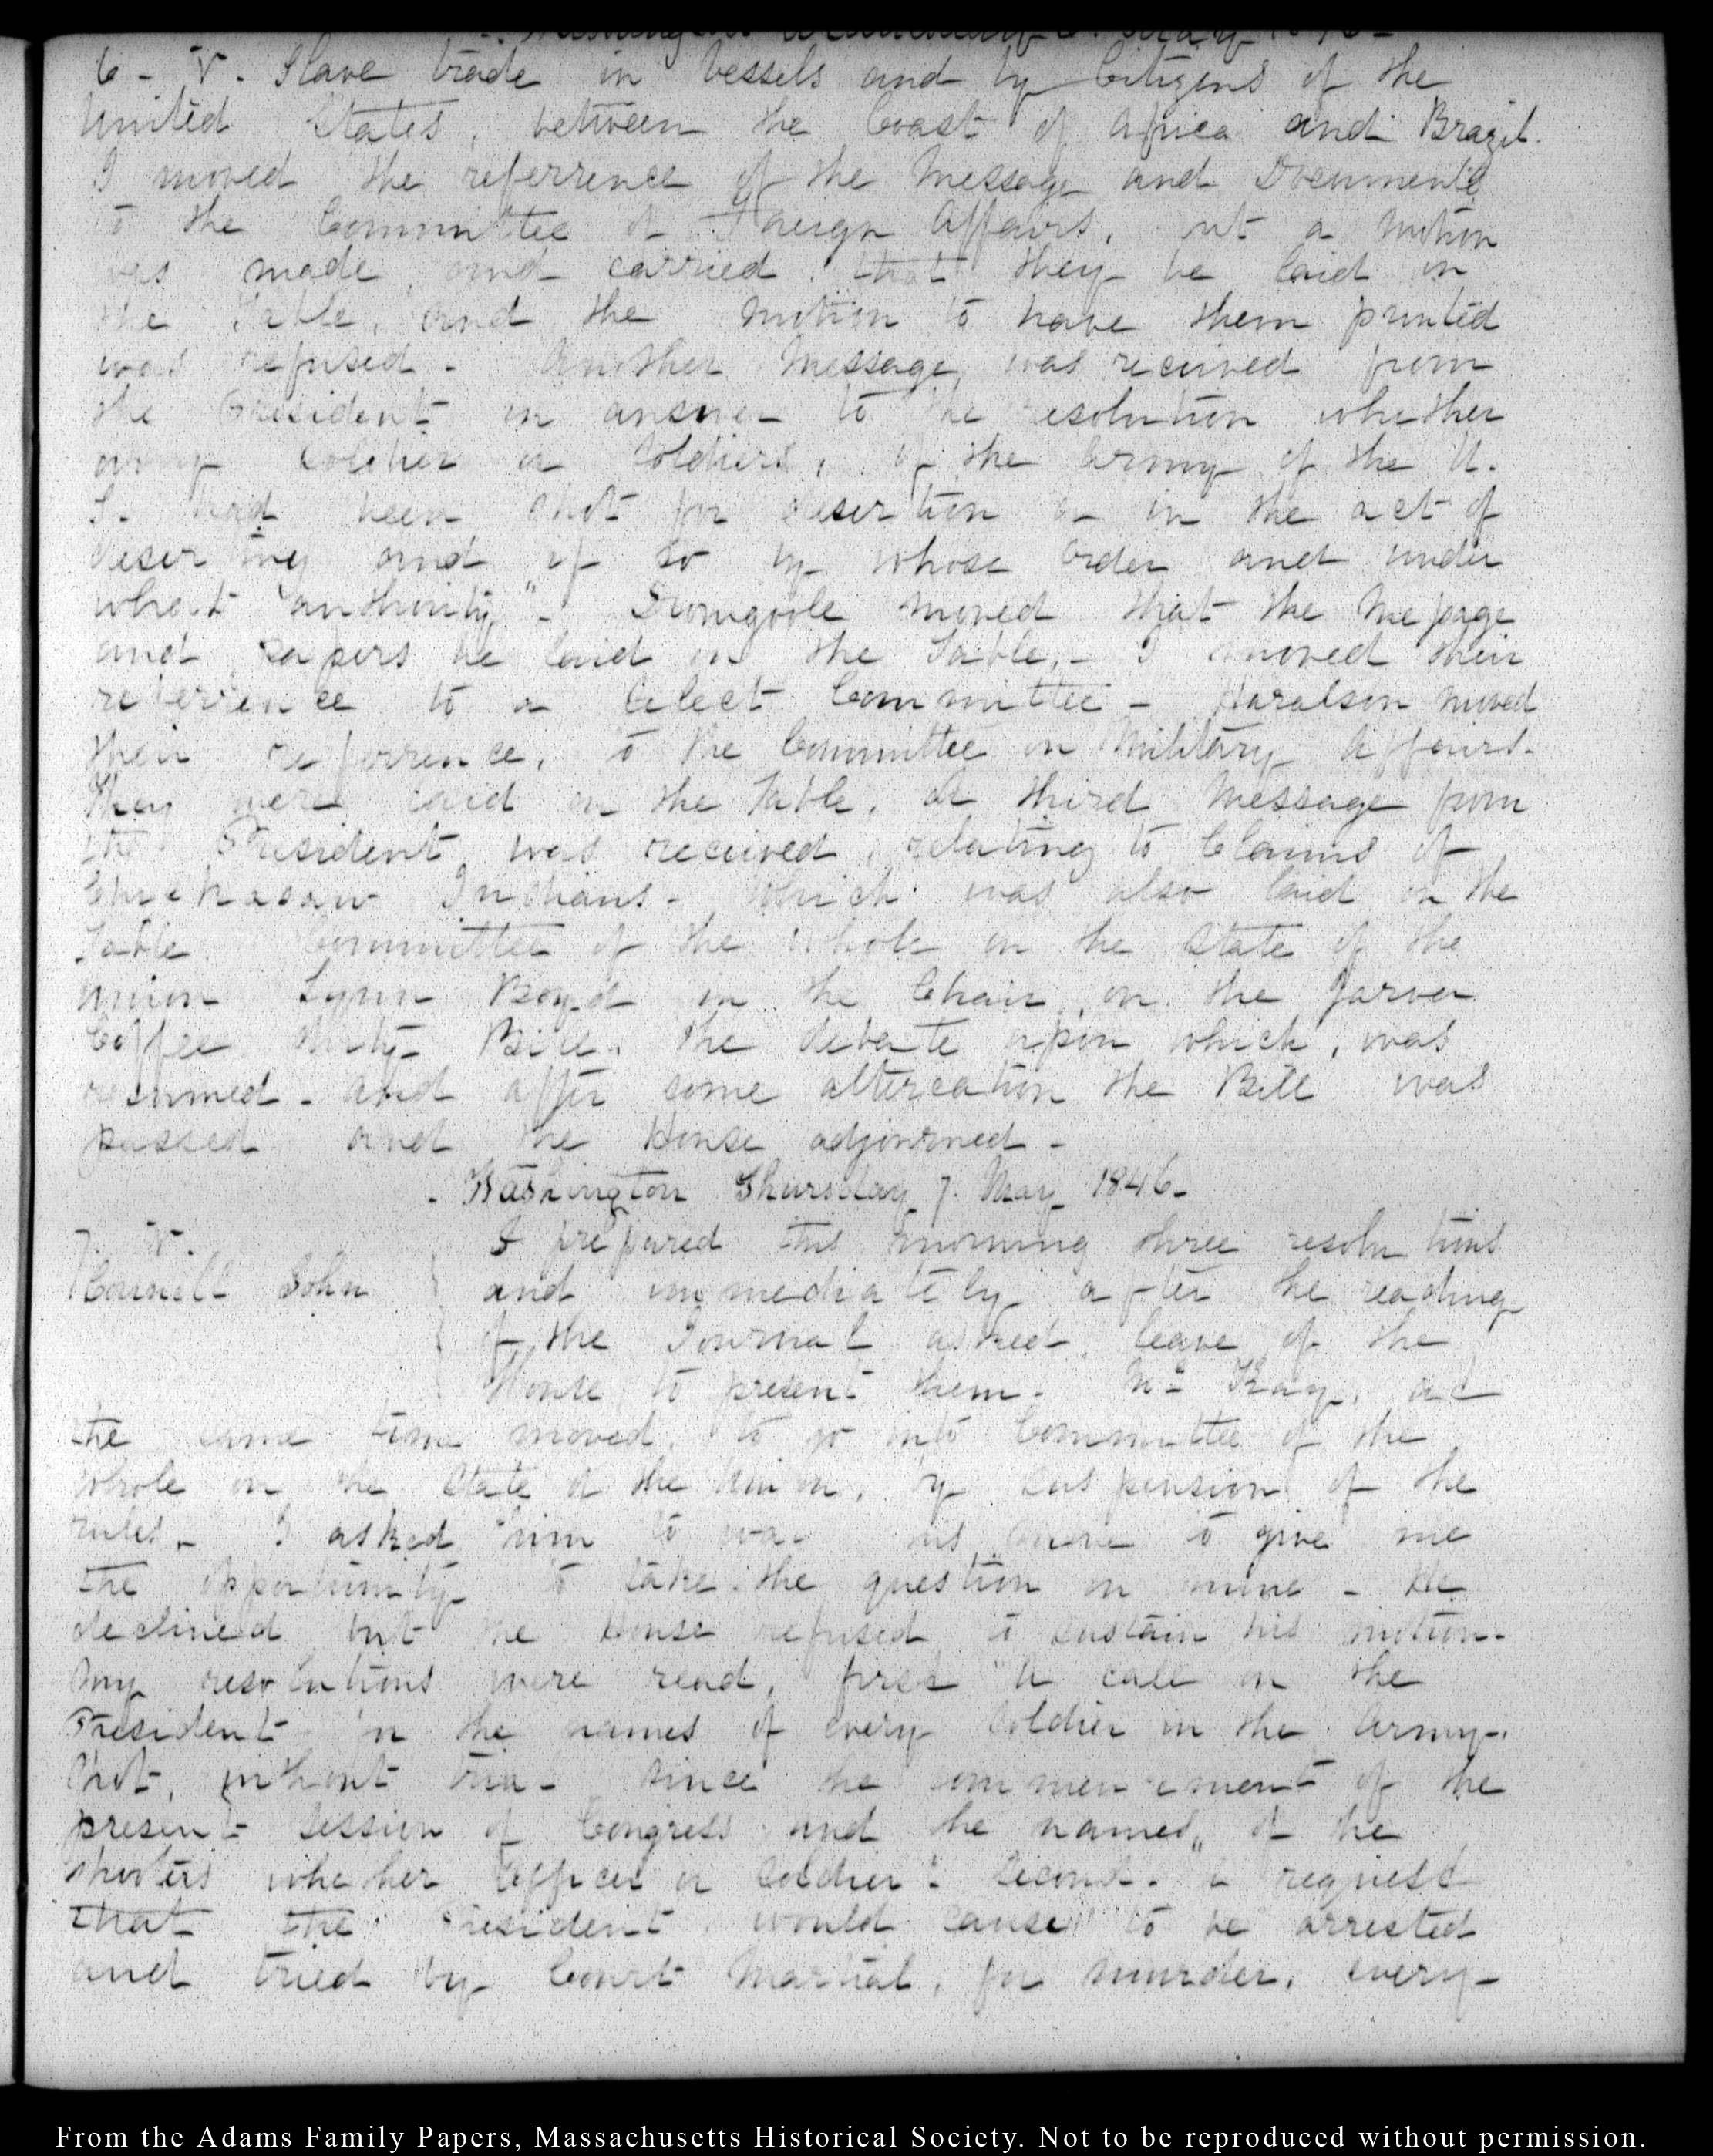 Washington Wednesday 6. May 1846-
6- V. Slave trade in Vessels and by Citizens of the
United States, between the Coast of Africa and Brazil.
I moved the referrence of the Message and Documents
to the Committee of Foreign Affairs, but a motion
was made and carried that they be laid on
the Table, and the motion to have them printed
was refused - Another Message, was received from
the President in answer to the resolution whether
any Soldier or Soldiers, of the Army of the U.
S. had been shot for desertion or in the act of
deserting and if so by whose order and under
what authority" - Dromgoole moved that the Message
and papers be laid on the Table, - I moved their
referrence to a Select Committee - Haralson moved
their referrence, to the Committee on Military Affairs -
They were laid on the Table. A third Message from
the President, was received, relating to Claims of
Chickasaw Indians - Which was also laid on the
Table Committee of the whole on the State of the
Union Lynn Boyd in the Chair, on the Jarver
Coffee duty Bill. the debate upon which, was
resumed - and after some altercation the Bill was
passed and the House adjourned -
- Washington Thursday 7. May 1846-
7. V. I prepared this morning three resolutions
Carroll John and immediately after the reading
of the Journal asked leave of the
House to present them - McKay, at
the same time moved, to go into Committee of the
whole on the State of the Union, by suspension of the
rules - I asked him to his move to give me
the opportunity to take the question on mine - He
declined but the House refused to sustain his motion -
My resolutions were read, first "A call on the
President for the names of every Soldier in the Army,
Shot, without trial since the commencement of the
present session of Congress and the names, of the
shooters whether Officer or Soldier - Second - a request
that the President would cause to be arrested
and tried by Court Martial, for murder, every
From the Adams Family Papers, Massachusetts Historical Society. Not to be reproduced without permission.